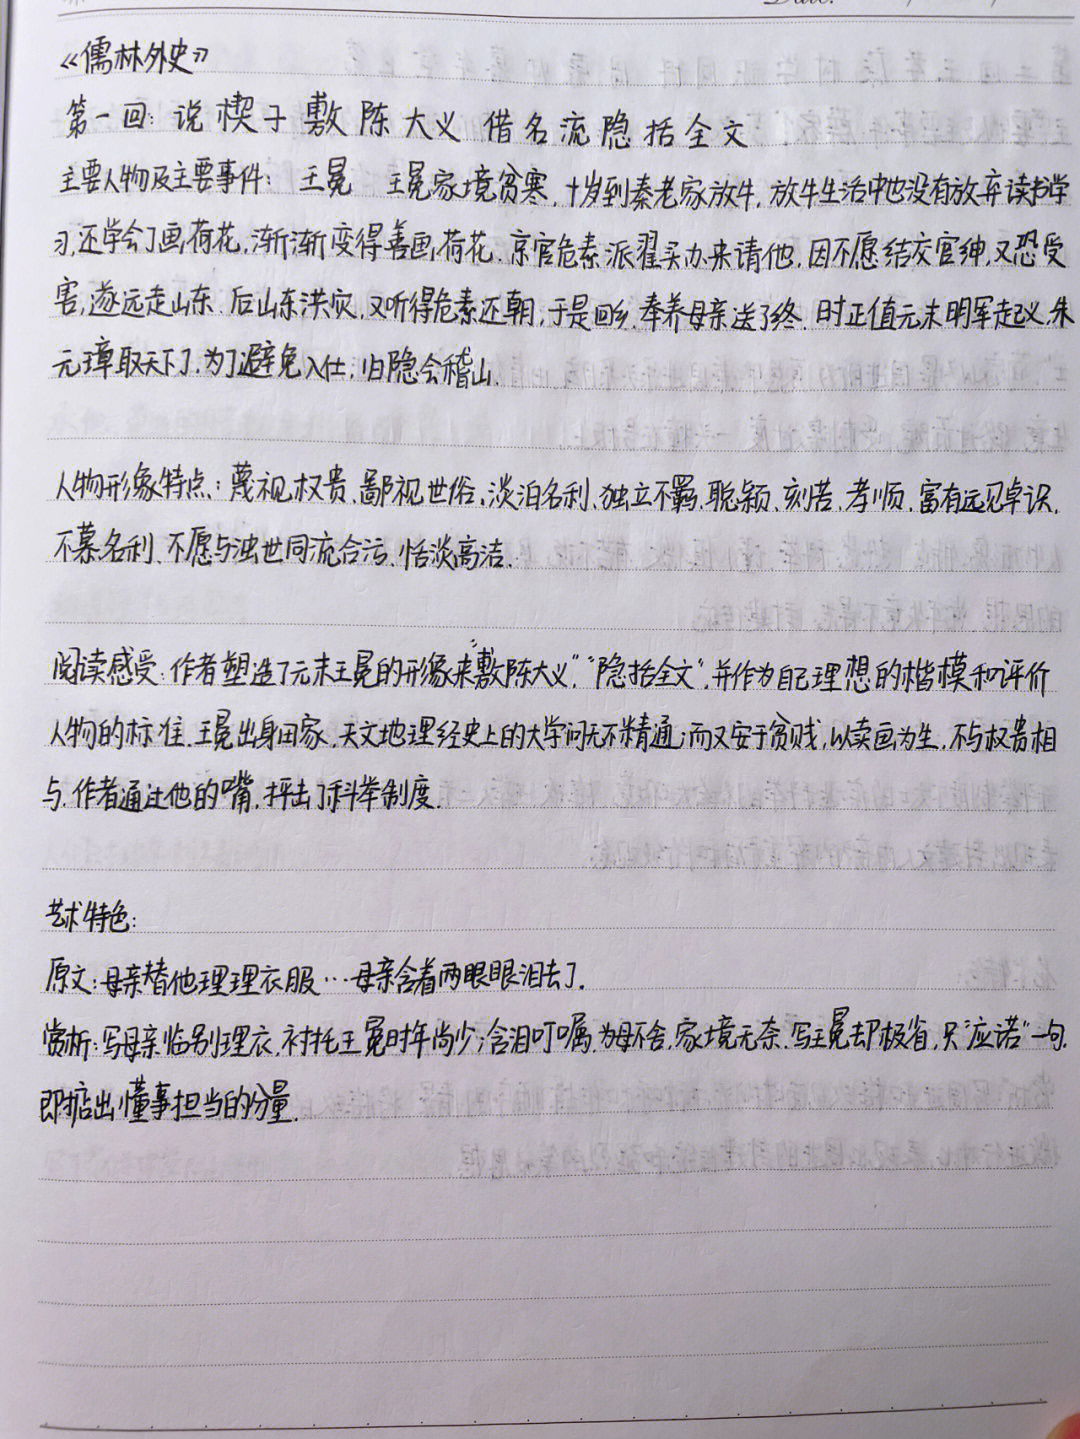 Date:
《儒林外史》
第一回:说楔子敷陈大义 借名流隐括全文
主要人物及主要事件: 王冕 王冕家境贫寒,十岁到秦老家放牛,放牛生活中也没有放弃读书学
习,还学会了画荷花,渐渐变得善画荷花.京官危素派翟买办来请他,因不愿结交官绅,又恐受
害,遂远走山东.后山东洪灾,又听得危素还朝,于是回乡,奉养母亲送了终.时正值元末明军起义,朱
元璋取天下,为了避免入仕,归隐会稽山.
人物形象特点:蔑视权贵、鄙视世俗、淡泊名利、独立不羁、聪颖、刻苦、孝顺、富有远见卓识、
不慕名利、不愿与浊世同流合污、恬淡高洁.
阅读感受:作者塑造了元末王冕的形象来"敷陈大义","隐括全文",并作为自己理想的楷模和评价
人物的标准.王冕出身田家,天文地理经史上的大学问无不精通;而又安于贫贱,以卖画为生,不与权贵相
与.作者通过他的嘴,抨击了科举制度.
艺术特色:
原文:母亲替他理理衣服…母亲含着两眼眼泪去了.
赏析:写母亲临别理衣,衬托王冕时年尚少,含泪叮嘱,为母不舍,家境无奈.写王冕却极省,只"应诺"一句,
即掂出懂事担当的分量.